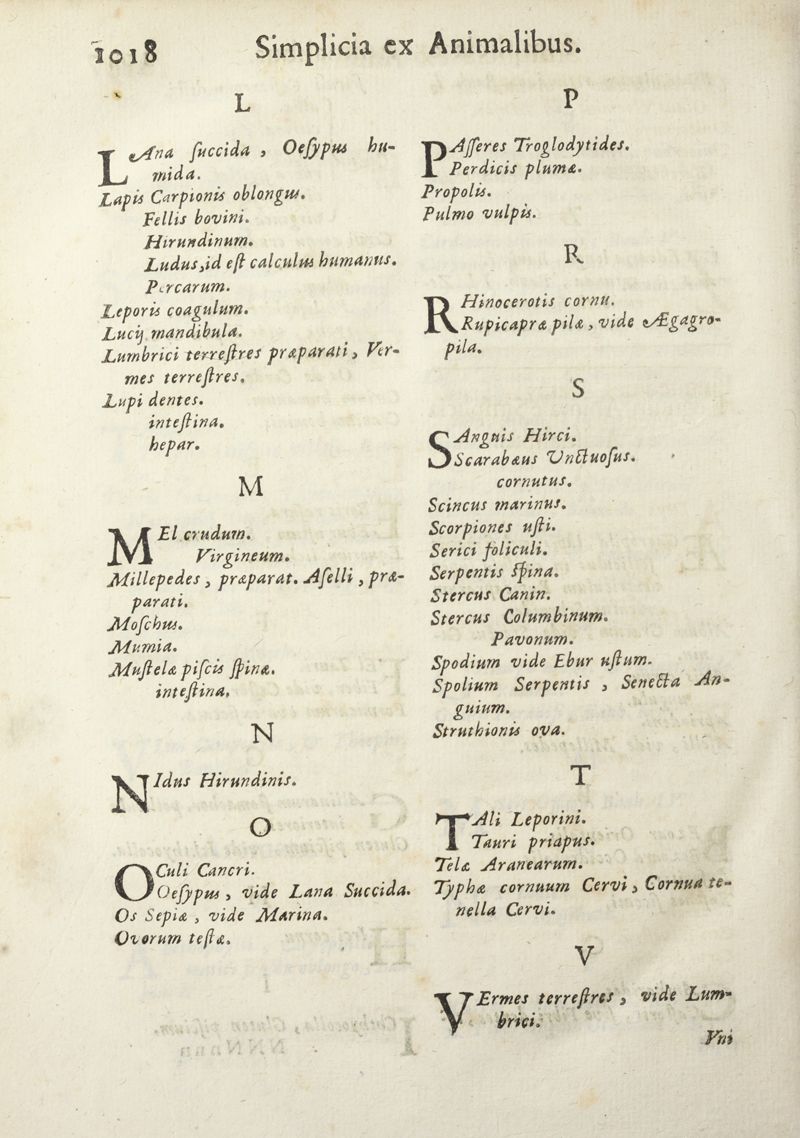 1018 Simplicia ex Animalibus.
L
LAna ſuccida, Oeſypus hu-
mida.
Lapis Carpionis oblongus.
Fellis bovini.
Hirundinum.
Ludus, id eſt calculus humanus.
Percarum.
Leporis coagulum.
Lucij mandibula.
Lumbrici terreſtres præparati, Ver-
mes terreſtres.
Lupi dentes.
inteſtina.
hepar.
M
MEl crudum.
Virgineum.
Millepedes, præparat. Aſelli, præ-
parati.
Moſchus.
Mumia.
Muſtelæ piſcis ſpinæ.
inteſtina.
N
NIdus Hirundinis.
O
OCuli Cancri.
Oeſypus, vide Lana Succida.
Os Sepiæ, vide Marina.
Ovorum teſtæ.
P
PAſſeres Troglodytides.
Perdicis plumæ.
Propolis.
Pulmo vulpis.
R
RHinocerotis cornu.
Rupicapræ pilæ, vide Ægagro-
pila.
S
SAnguis Hirci.
Scarabæus Unctuoſus.
cornutus.
Scincus marinus.
Scorpiones uſti.
Serici foliculi.
Serpentis ſpina.
Stercus Canin.
Stercus Columbinum.
Pavonum.
Spodium vide Ebur uſtum.
Spolium Serpentis, Senecta An-
guium.
Struthionis ova.
T
TAli Leporini.
Tauri priapus.
Telæ Aranearum.
Typhæ cornuum Cervi, Cornua te-
nella Cervi.
V
VErmes terreſtres, vide Lum-
brici.
Vni